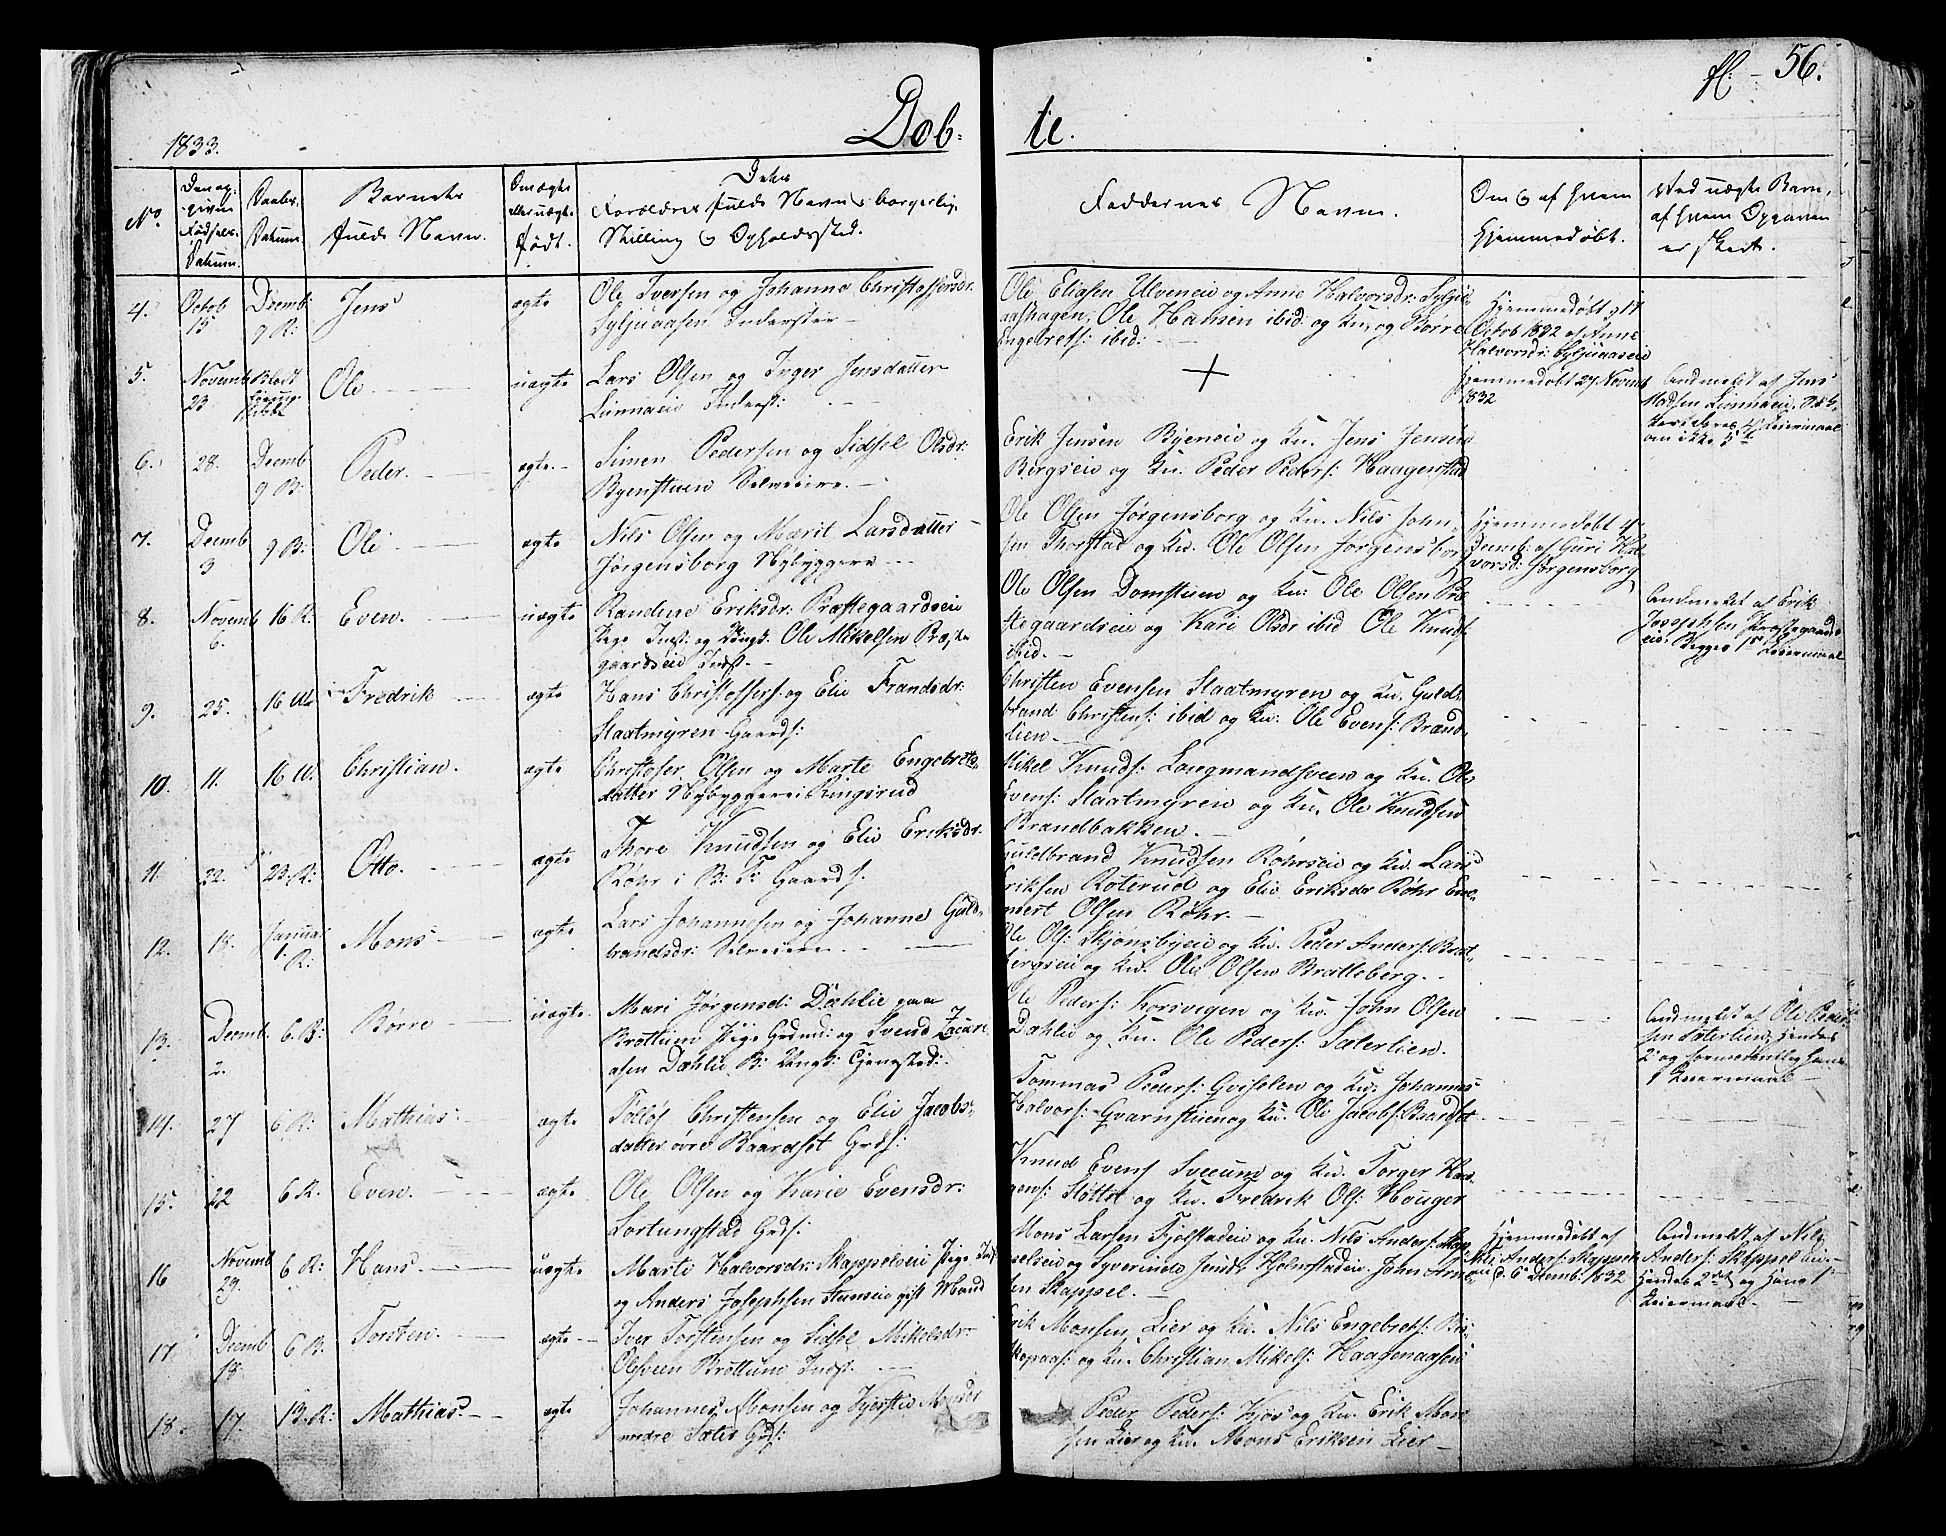 fl: - 56.
1833.
Døb- te.
No
Den op-
given
Fødsels-
Datum.
Daabs-
Datum.
Barnets
fulde Navn.
Om ægte
eller uægte
født.
Dets
Forældres fulde Navne, borgerlig
Stilling & Opholdssted.
Faddernes Navne.
Om & af hvem
hjemmedøbt.
Ved uægte Børn,
af hvem Opgaven
er skeet.
4. Octob 15 Decemb: 9 R: Jens ægte
Ole Iversen og Johanne Christophersdr.
Syljuaasen Inderster
Ole Eliasen Ulveneie og Anne Halvorsdr: Sylju
aashagen, Ole Hansen ibid: og Ku, og Børre
Engebrets: ibid:
Hjemmedøbt 17
Octob 1832 af Anne
Halvorsdr: Syljuaaseie
5. Novemb 23 Ole uægte
Lars Olsen og Inger Jensdatter
Linnaeie Inderst:
+
Hjemmedøbt 27 Novemb
1832
Anmeldt af Jens
Madsen Linnaeie.
6. 28. Decemb 9 B: Peder. ægte
Simen Pedersen og Sidsel Olsdr:
Byenstuen Selveiere.
Erik Jensen Byeneie og Ku. Jens Jensen
Bergseie og Ku. Peder Peders: Haagenstad
7. Decemb 3 9 B: Ole ægte
Nils Olsen og Marit Larsdatter
Jørgensborg Nybyggere
Ole Olsen Jørgensborg og Ku. Nils John-
sen Thorstad og Ku. Ole Olsen Jørgensbor
Hjemmedøbt 4
Decemb: af Guri Hal
vorsd: Jørgensborg
8. Novemb 6. 16 R: Even. uægte
Randine Eriksdr: Præstegaardseie
Pige Inst: og Ungk: Ole Mikelsen Præste
gaardseie Indst.
Ole Olsen Domstuen og Ku: Ole Olsen Præ
stegaardseie og Kari Olsdr ibid Ole Knuds:
ibid.
Anmeldet af Erik
Josephsen Præstegaards
eie. Begges 1st Leiermaal
9. 25. 16 Fredrik ægte
Hans Christophers: og Elie Frandsdr:
Slaatmyren Gaards:
Christen Evensen Slaatmyren og Ku. Guld-
brand Christens: ibid og Ku. Ole Evens: Brand-
lien.
10. 11. 16 Christian. ægte
Christofer Olsen og Marte Engebrets-
datter Nybyggere i Ringsrud
Mikel Knuds: Langmandsveen og Ku. Ole
Evens: Slaatmyren og Ku. Ole Knudsen
Brandbakken.
11. 22. 23. R: Otto. ægte
Thore Knudsen og Elie Eriksdr.
Røhr i B: Gaards.
Guldbrand Knudsen Røhrseie og Ku. Lars
Eriksen Roterud og Elie Eriksdr Røhr
Olsen Røhr.
12. 19. Januar 1. R: Mons ægte
Lars Johannesen og Johanne Guld-
brandsdr: Selveiere
Ole Ols: Skjønsbyeie og Ku. Peder Anders: Brat-
bergseie og Ku. Ole Olsen Bratberg.
13. Decemb. 2. 6. B: Børre uægte
Mari Jørgensd: Dæhlie paa
Brøttum Pige og Svend Zacari
asen Dæhlie B: Ungk: Tjenested:
Ole Peders: Korsvegen og Ku. John Olsen
Dæhlie og Ku. Ole Peders: Sæterlien.
Anmeldet af Ole Peder-
sen Sæterlien, hendes
2 og formeentlig hans
1 Leiermaal
14. 27 6. R: Mathias ægte
Tolløf Christensen og Elie Jacobs-
datter øvre Baardset Grds:
Tommas Peders: Gviselen og Ku. Johannes
Halvors: Qvarnstuen og Ku. Ole Jacobs: Baardset
15. 22 6 R. Even. ægte
Ole Olsen og Karie Evensdr:
Lortungstad Grds:
Knud Evens Sveeum og Ku. Torger Haa
gens: Slottet og Ku. Fredrik Ols: Houger
16 Novemb 29. 6 R: Hans uægte
Marte Halvorsdr: Skappelseie Pige Inds
og Anders Josephsen Stenseie gift Mand
Mons Larsen Fjølstadeie og Ku. Nils Anders: Skap-
pelseie og Syverine Jensdr Holmstadeie. John Arne-
sen Skappel.
Hjemmedøbt af
Nils Anders: Skappels
eie d. 6 Decemb. 1832
Anmeldt af Nils
Anders: Skappeleie
hendes 2det og hans 1st
Leiermaal.
17 Decemb 18. 6 B: Torsten. ægte
Iver Torstensen og Sidsel Mikelsdr:
Olsveen Brøttum Indst:
Erik Monsen Lier og Ku. Nils Engebrets: Bis-
kopaas: og Ku. Christian Mikels: Haagenaasen
18. 17. 13. R: Mathias. ægte
Johannes Monsen og Kjersti Monsdr
nedre Sæter Grds:
Peder Peders: Kjøs og Ku. Erik Mon-
sen Lier og Ku. Mons Eriksen Lier